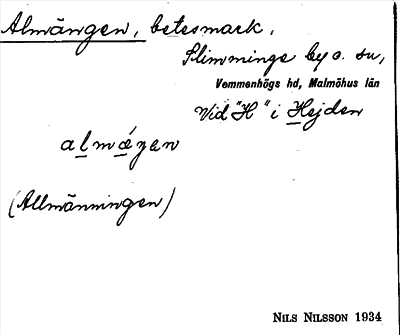 Almängen, betesmark,
Slimminge by o. sn,
Vemmenhögs hd, Malmöhus län
Vid "H" i Hejden
almǽgen
(Allmänningen)
NILS NILSSON 1934